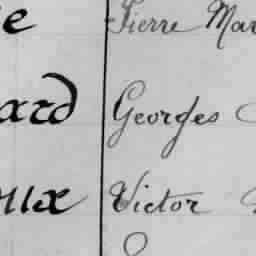 e Pierre Mar
ard Georges
ux Victor